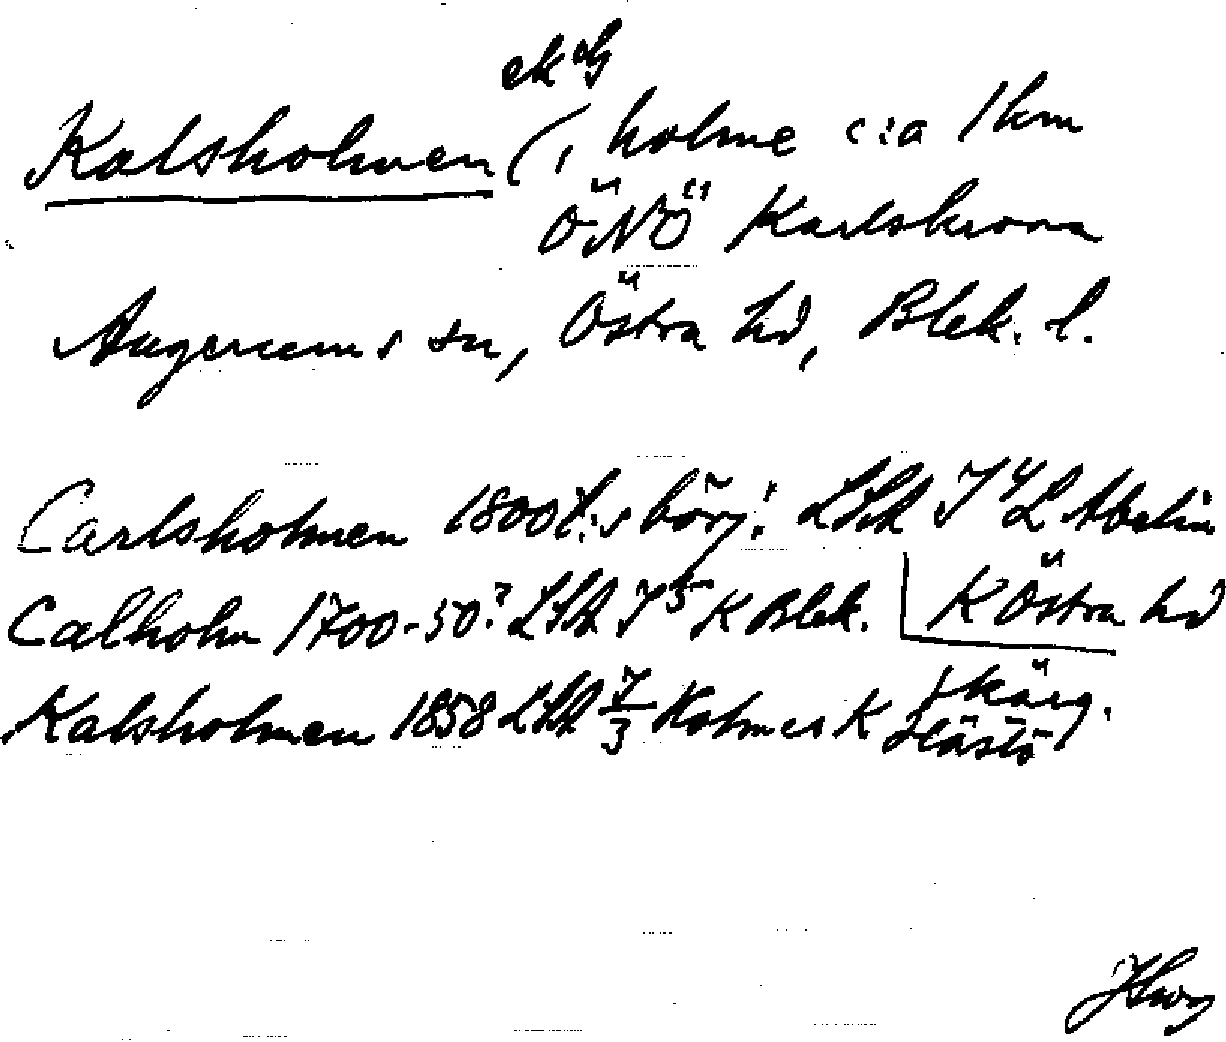 Kalsholmen (, holme c:a 1 km
ÖNÖ Karlskrona
Augerums sn, Östra hd, Blek. l.
Carlsholmen 1800t:s börj: LSA J4 L Abelin
K Östra hd
Calholm 1700-50? LSA J5 K Blek.
Kalsholmen 1858 LSA 7/3 Kohmer K skärg.
Hästö